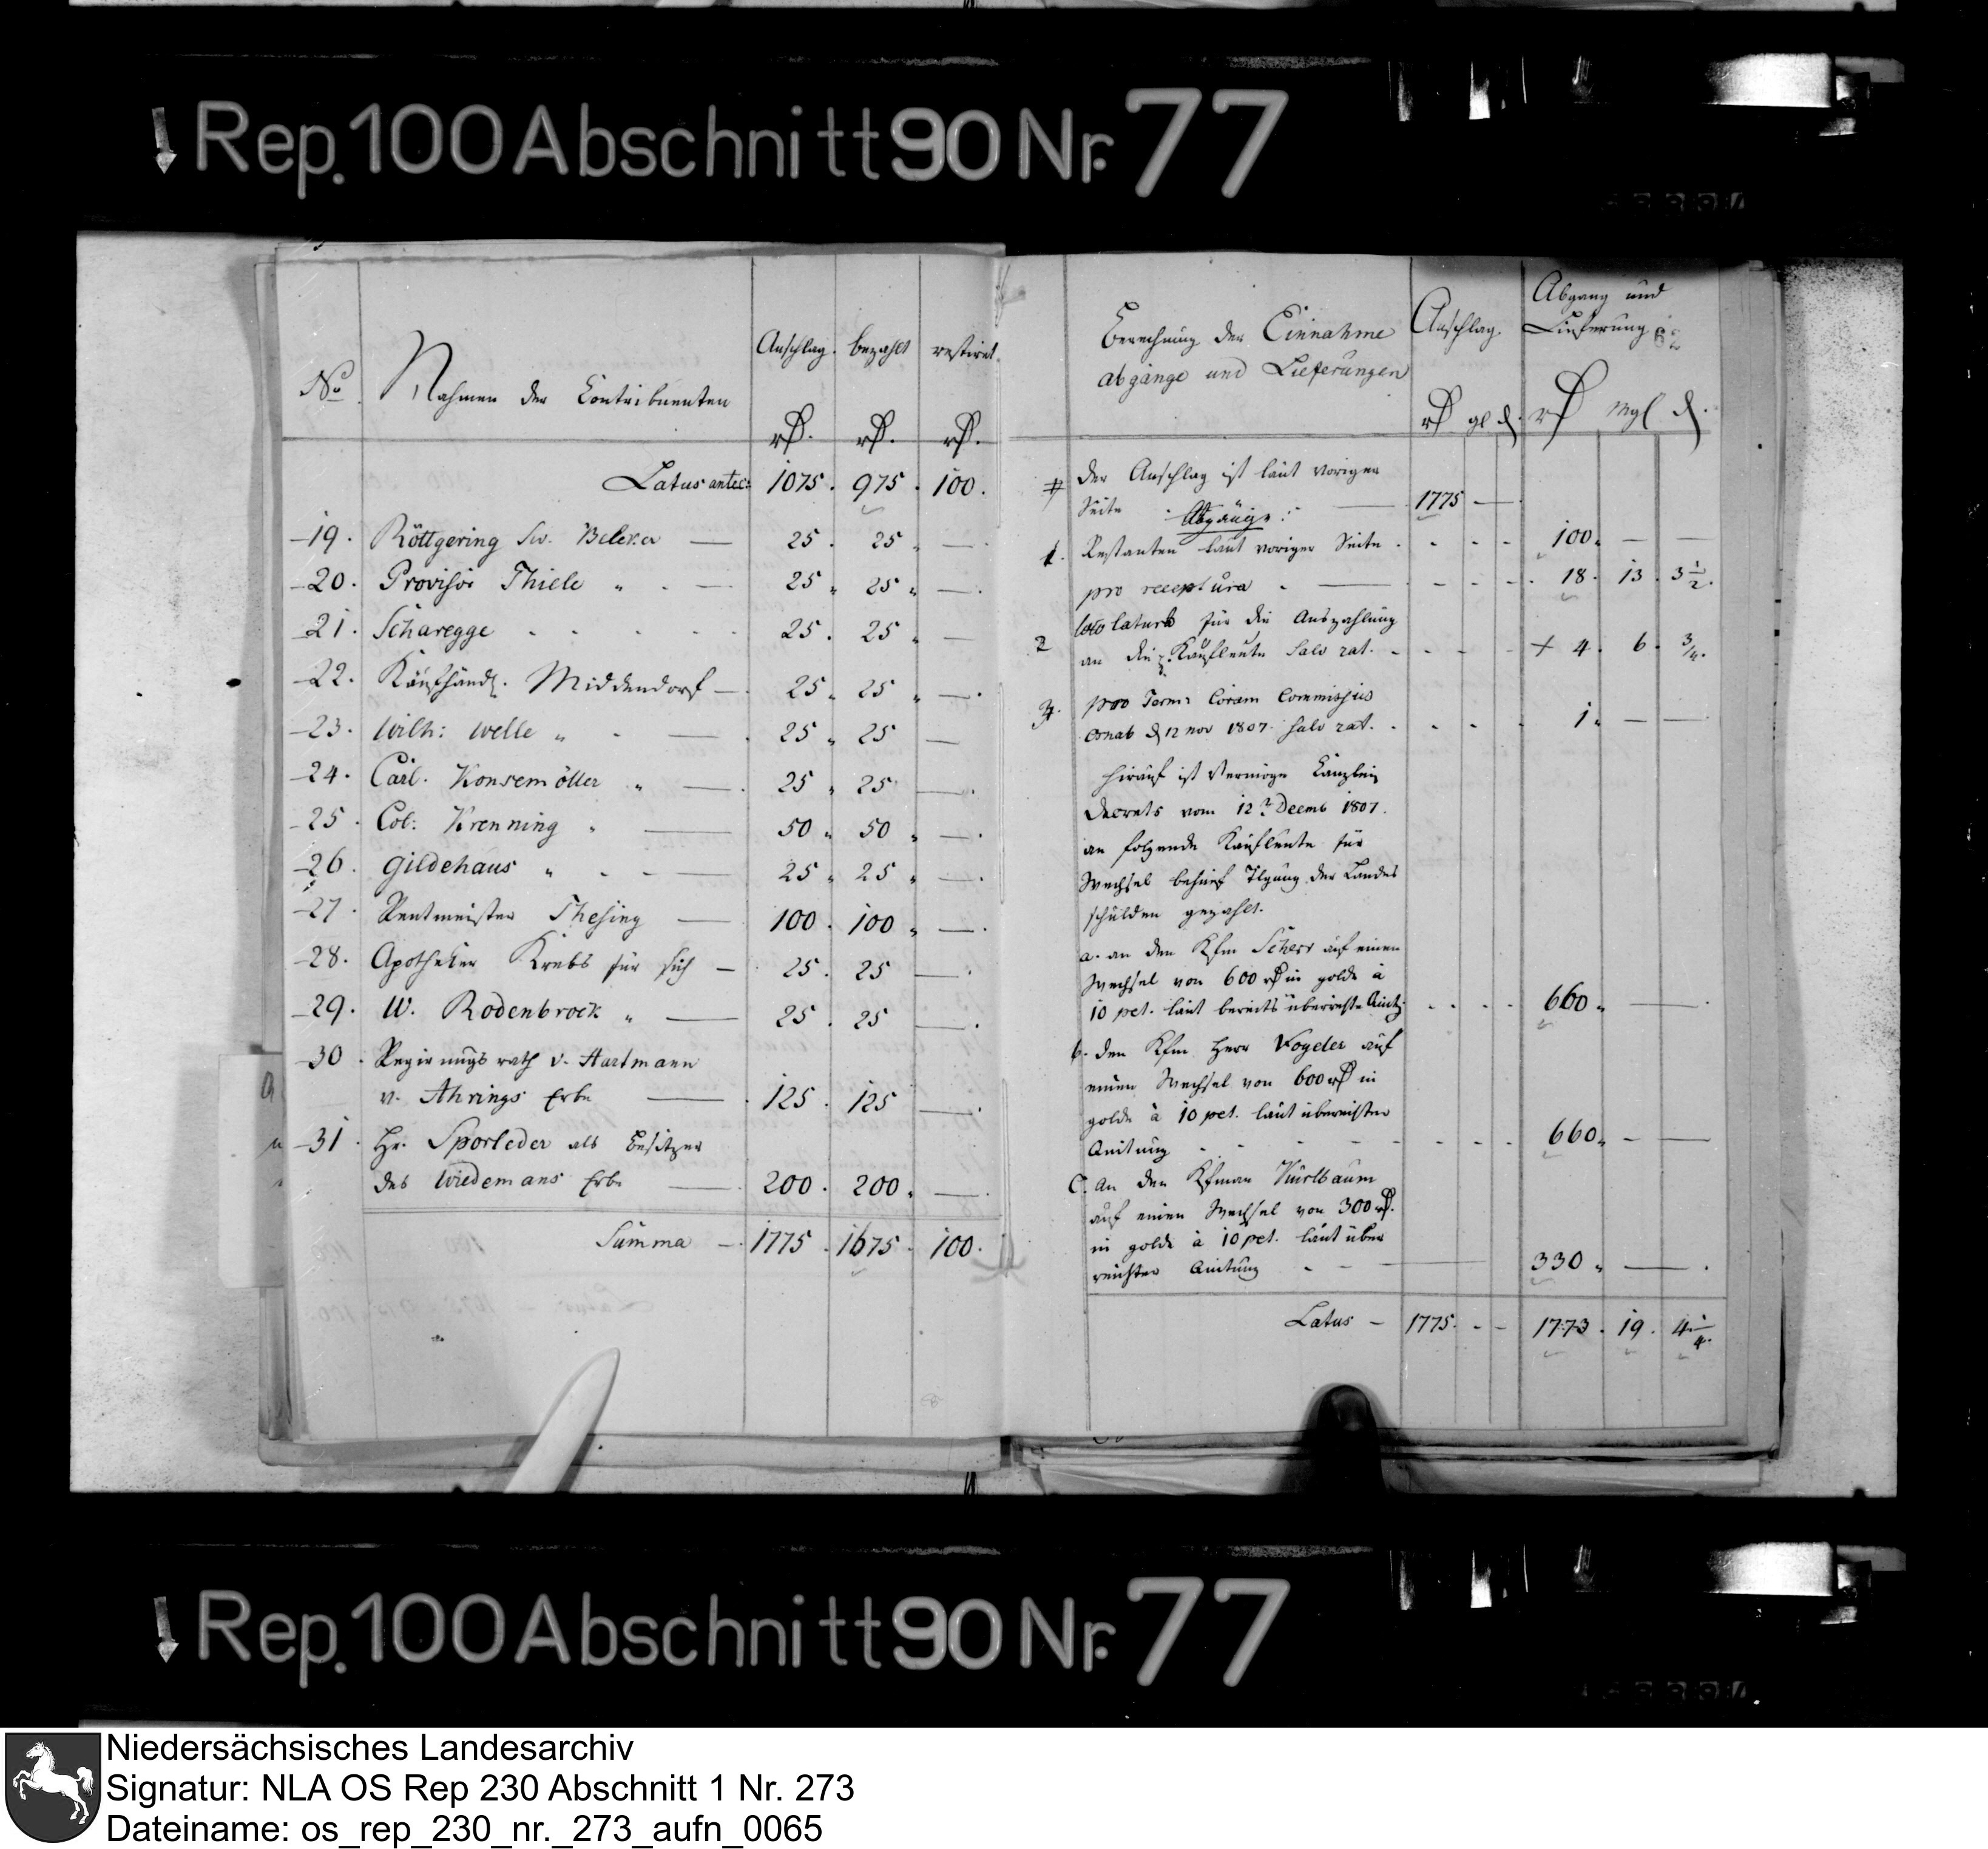 Rep. 100 Abschnitt 90 Nr. 77
No
Nahmen der Contribuenten
Anschlag. bezahlt restiret.
rthlr. rthlr. rthlr.
Latus antec: 1075. 975. 100.
19. Röttgering 25. 25 " —.
20. Provisor Thiele " . — 25 " 25 " —.
21. Scharegge . . . . . 25. 25 " —
22. Kaufhändl. Middendorf — 25 " 25 " —.
23. Wilh: Welle " . — 25 " 25 —
24. Carl. Konsemöller " — 25 " 25 —.
25. Col: Krenning " — 50 " 50 " —.
26. Gildehaus " . . — 25 " 25 " —.
27. Rentmeister Thesing — 100. 100 " —.
28. Apotheker Krebs für sich — 25. 25 —.
29. W. Rodenbrock " — 25. 25 —.
30. Regirungs rath v. Hartmann
v. Ahrings Erbe — 125. 125 —.
31. Hr. Sporleder als Besitzer
des Wiedemans Erbe — 200. 200 " —.
Summa — 1775. 1675. 100.
Berechnung der Einnahme
abgänge und Lieferungen
Anschlag.
Abgang und
Lieferung
62
rthlr gl d. rthlr mgl d.
Der Anschlag ist laut voriger
Seite — 1775 —
Abgänge:
1. Restanten laut voriger Seite . . . . 100 " — —
pro receptura . — . . . . 18. 13. 3 1/2.
2 für die Auszahlung
an die Kaufleute salv rat. . . . . + 4. 6. 3/4.
3. pro Term: Coram Commissio
Osnab d 12 nov 1807. salv rat. . . . . 1 " — —
Hirauf ist Vermöge Canzley
Decrets vom 12t Decemb 1807.
an folgende Kaufleute für
Wechsel behuef Tlgung der Landes
schulden gezahlt.
a. an den Kfm Scherr auf einen
Wechsel von 600 rthlr in golde à
10 pct. laut bereits überreichte Quitg . . . . 660 " —.
b. den Kfm Herr Vogeler auf
einen Wechsel von 600 rthlr in
golde à 10 pct. laut übereichter
Quitung . . . . . . . 660 " — —
C. An den Kfman Kürlbaum
auf einen Wechsel von 300 rthlr.
in golde à 10 pct. laut über
reichter Quitung . — — 330 " —.
Latus — 1775. - - 1773. 19. 4 1/4.
Rep. 100 Abschnitt 90 Nr. 77
Niedersächsisches Landesarchiv
Signatur: NLA OS Rep 230 Abschnitt 1 Nr. 273
Dateiname: os_rep_230_nr._273_aufn_0065